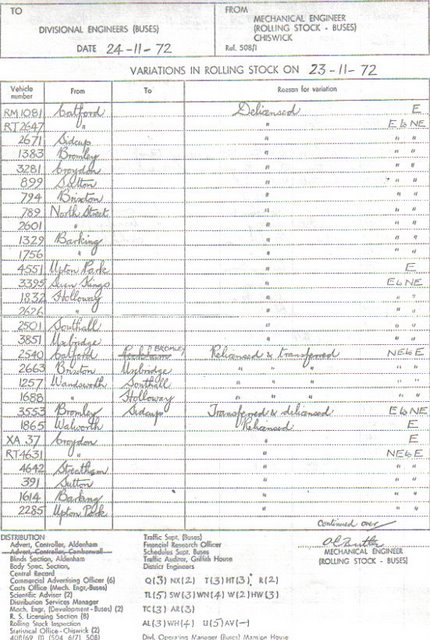 TO
FROM
DIVISIONAL ENGINEERS (BUSES)
MECHANICAL ENGINEER
(ROLLING STOCK - BUSES)
CHISWICK
DATE 24-11-72
Ref. 508/1
VARIATIONS IN ROLLING STOCK ON 23-11-72
Vehicle number From To Reason for variation
RM1081 Catford Delicensed E
RT2647 " " E to NE
2671 Sidcup " " "
1383 Bromley " " "
3281 Croydon " " "
899 Sutton " " "
794 Brixton " " "
789 North Street " " "
2601 " " " "
1329 Barking " " "
1756 " " " "
4551 Upton Park " E
3395 Seven Kings " E to NE
1832 Holloway " " "
2626 " " " "
2501 Southall "
3851 Uxbridge "
2540 Catford Peckham BROMLEY Relicensed & transferred NE to E
2663 Brixton Uxbridge " " " " "
1257 Wandsworth Southall " " " " "
1688 " Holloway " " " " "
3553 Bromley Sidcup Transferred & delicensed E to NE
1865 Walworth Relicensed E
XA 37 Croydon " E
RT4631 " " NE to E
4642 Streatham " " "
391 Sutton " " "
1614 Barking " " "
2285 Upton Park " " "
Continued over
MECHANICAL ENGINEER
(ROLLING STOCK - BUSES)
DISTRIBUTION
Advert, Controller, Aldenham
Advert, Controller, Camberwell
Blinds Section, Aldenham
Body Spec, Section,
Central Record
Commercial Advertising Officer (6)
Costs Office (Mech. Engr.-Buses)
Scientific Adviser (2)
Distribution Services Manager
Mech. Engr. (Development-Buses) (2)
R. S. Licensing Section (8)
Rolling Stock Inspection
Statistical Office-Chiswick (2)
Traffic Supt. (Buses)
Financial Research Officer
Schedules Supt. Buses
Traffic Auditor, Griffith House
District Engineers
Q(3) NX(2) T(3) HT(3) R(2)
TL(5) SW(3) WN(4) W(2) HW(3)
TC(3) AR(3)
AL(3) WH(4) U(5) AV(-)
Divl. Operating Manager (Buses) Manisoe House